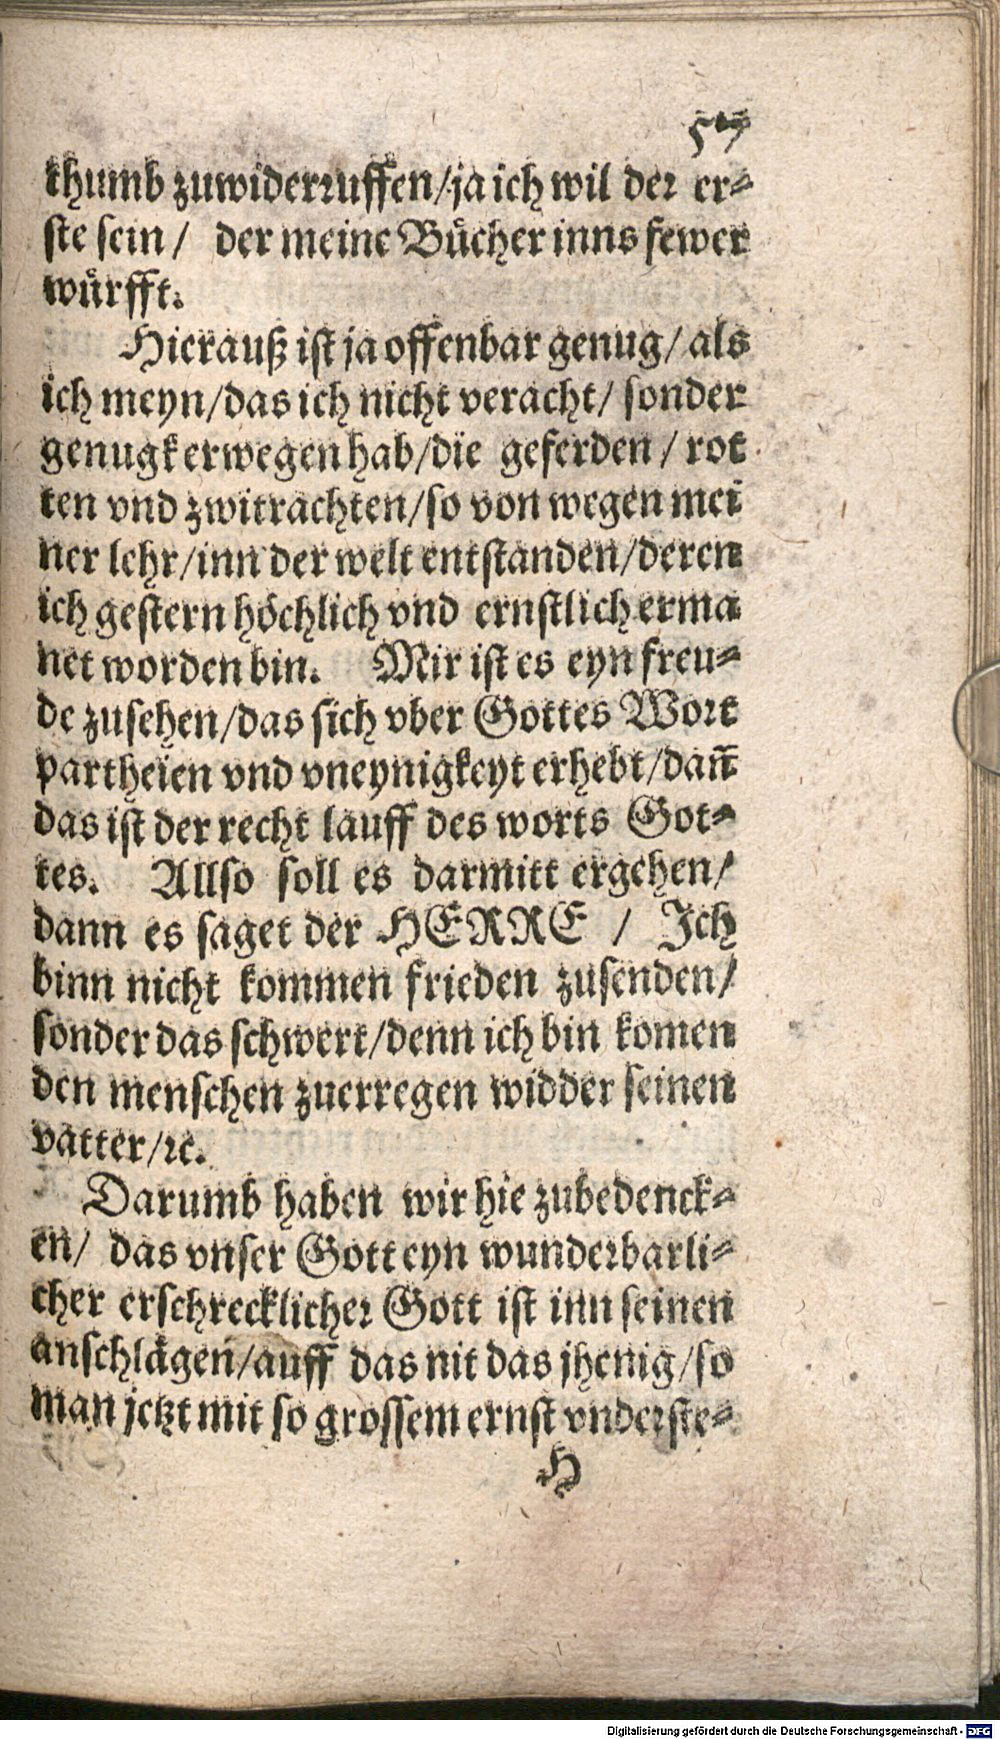 57
thumb zuwiderruffen/ja ich wil der er⸗
ste sein / der meine Bücher inns fewer
würfft.
Hierauß ist ja offenbar genug/ als
ich meyn/das ich nicht veracht/ sonder
genugk erwegen hab/die geferden / rot
ten vnd zwitrachten/so von wegen mei
ner lehr/inn der welt entstanden/deren
ich gestern höchlich vnd ernstlich erma
net worden bin. Mir ist es eyn freu⸗
de zusehen/das sich vber Gottes Wort
partheien vnd vneynigkeyt erhebt/dañ
das ist der recht lauff des worts Got⸗
tes. Allso soll es darmitt ergehen/
dann es saget der HERRE / Ich
binn nicht kommen frieden zusenden/
sonder das schwert/denn ich bin komen
den menschen zuerregen widder seinen
vatter/ꝛc.
Darumb haben wir hie zubedenck⸗
en/ das vnser Gott eyn wunderbarli⸗
cher erschrecklicher Gott ist inn seinen
anschlägen/auff das nit das jhenig/so
man jetzt mit so grossem ernst vnderste⸗
H
Digitalisierung gefördert durch die Deutsche Forschungsgemeinschaft - DFG